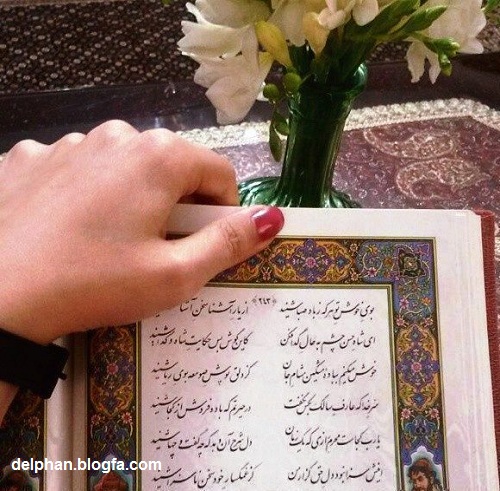 ﴿۲۴۳﴾
بوی خوش تو هر که ز باد صبا شنید از یار آشنا سخن آشنا شنید
ای شاه حسن چشم به حال گدا فکن کاین گوش بس حکایت شاه و گدا شنید
خوش میکنم بباده مشکین مشام جان کز دلق پوش صومعه بوی ریا شنید
سر خدا که عارف سالک بکس نگفت در حیرتم که باده فروش از کجا شنید
یا رب کجاست محرم رازی که یک زمان دل شرح آن دهد که چه گفت و چها شنید
اینش سزا نبود دل حق گزار من کز غمگسار خود سخن ناسزا شنید
delphan.blogfa.com